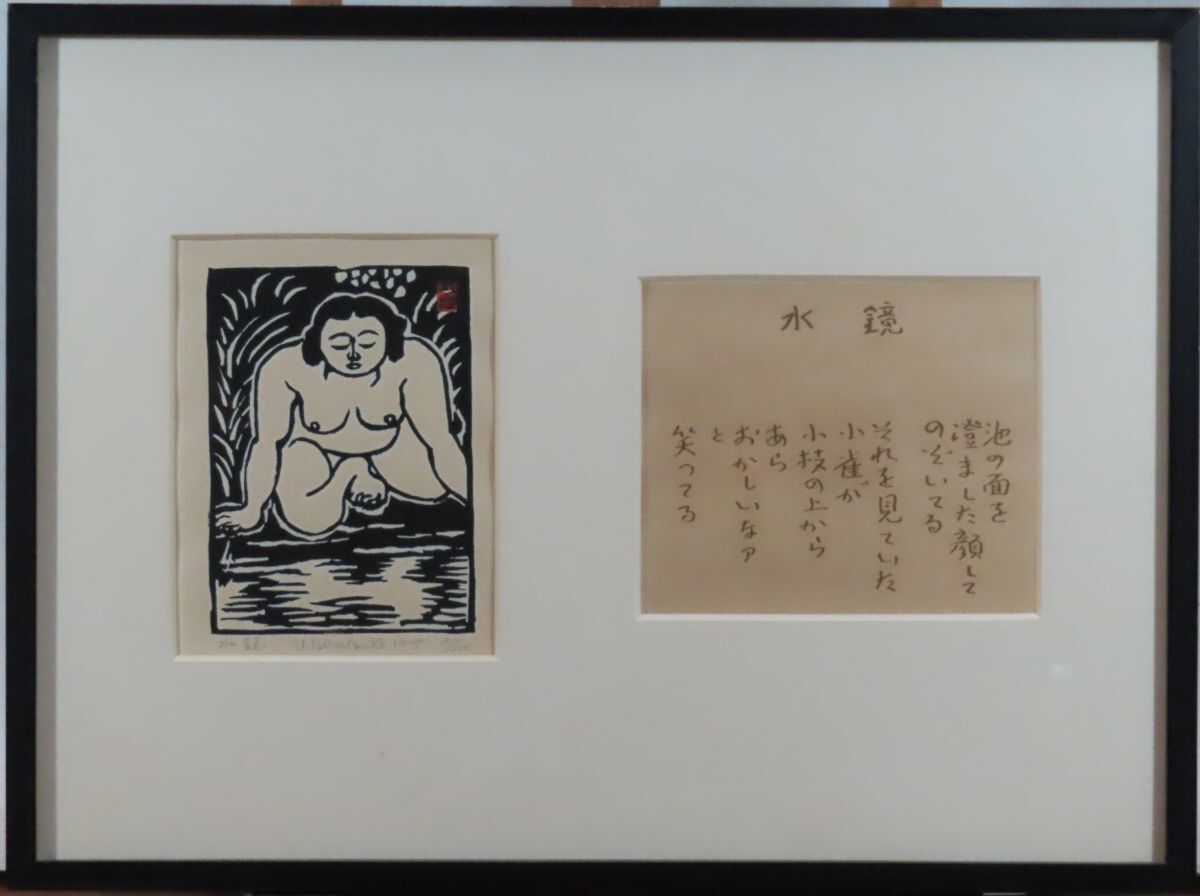 水鏡
池の面を
澄ました顔して
のぞいてる
それを見ていた
小雀が
小枝の上から
あら
おかしいなァ
と
笑ってる
水鏡